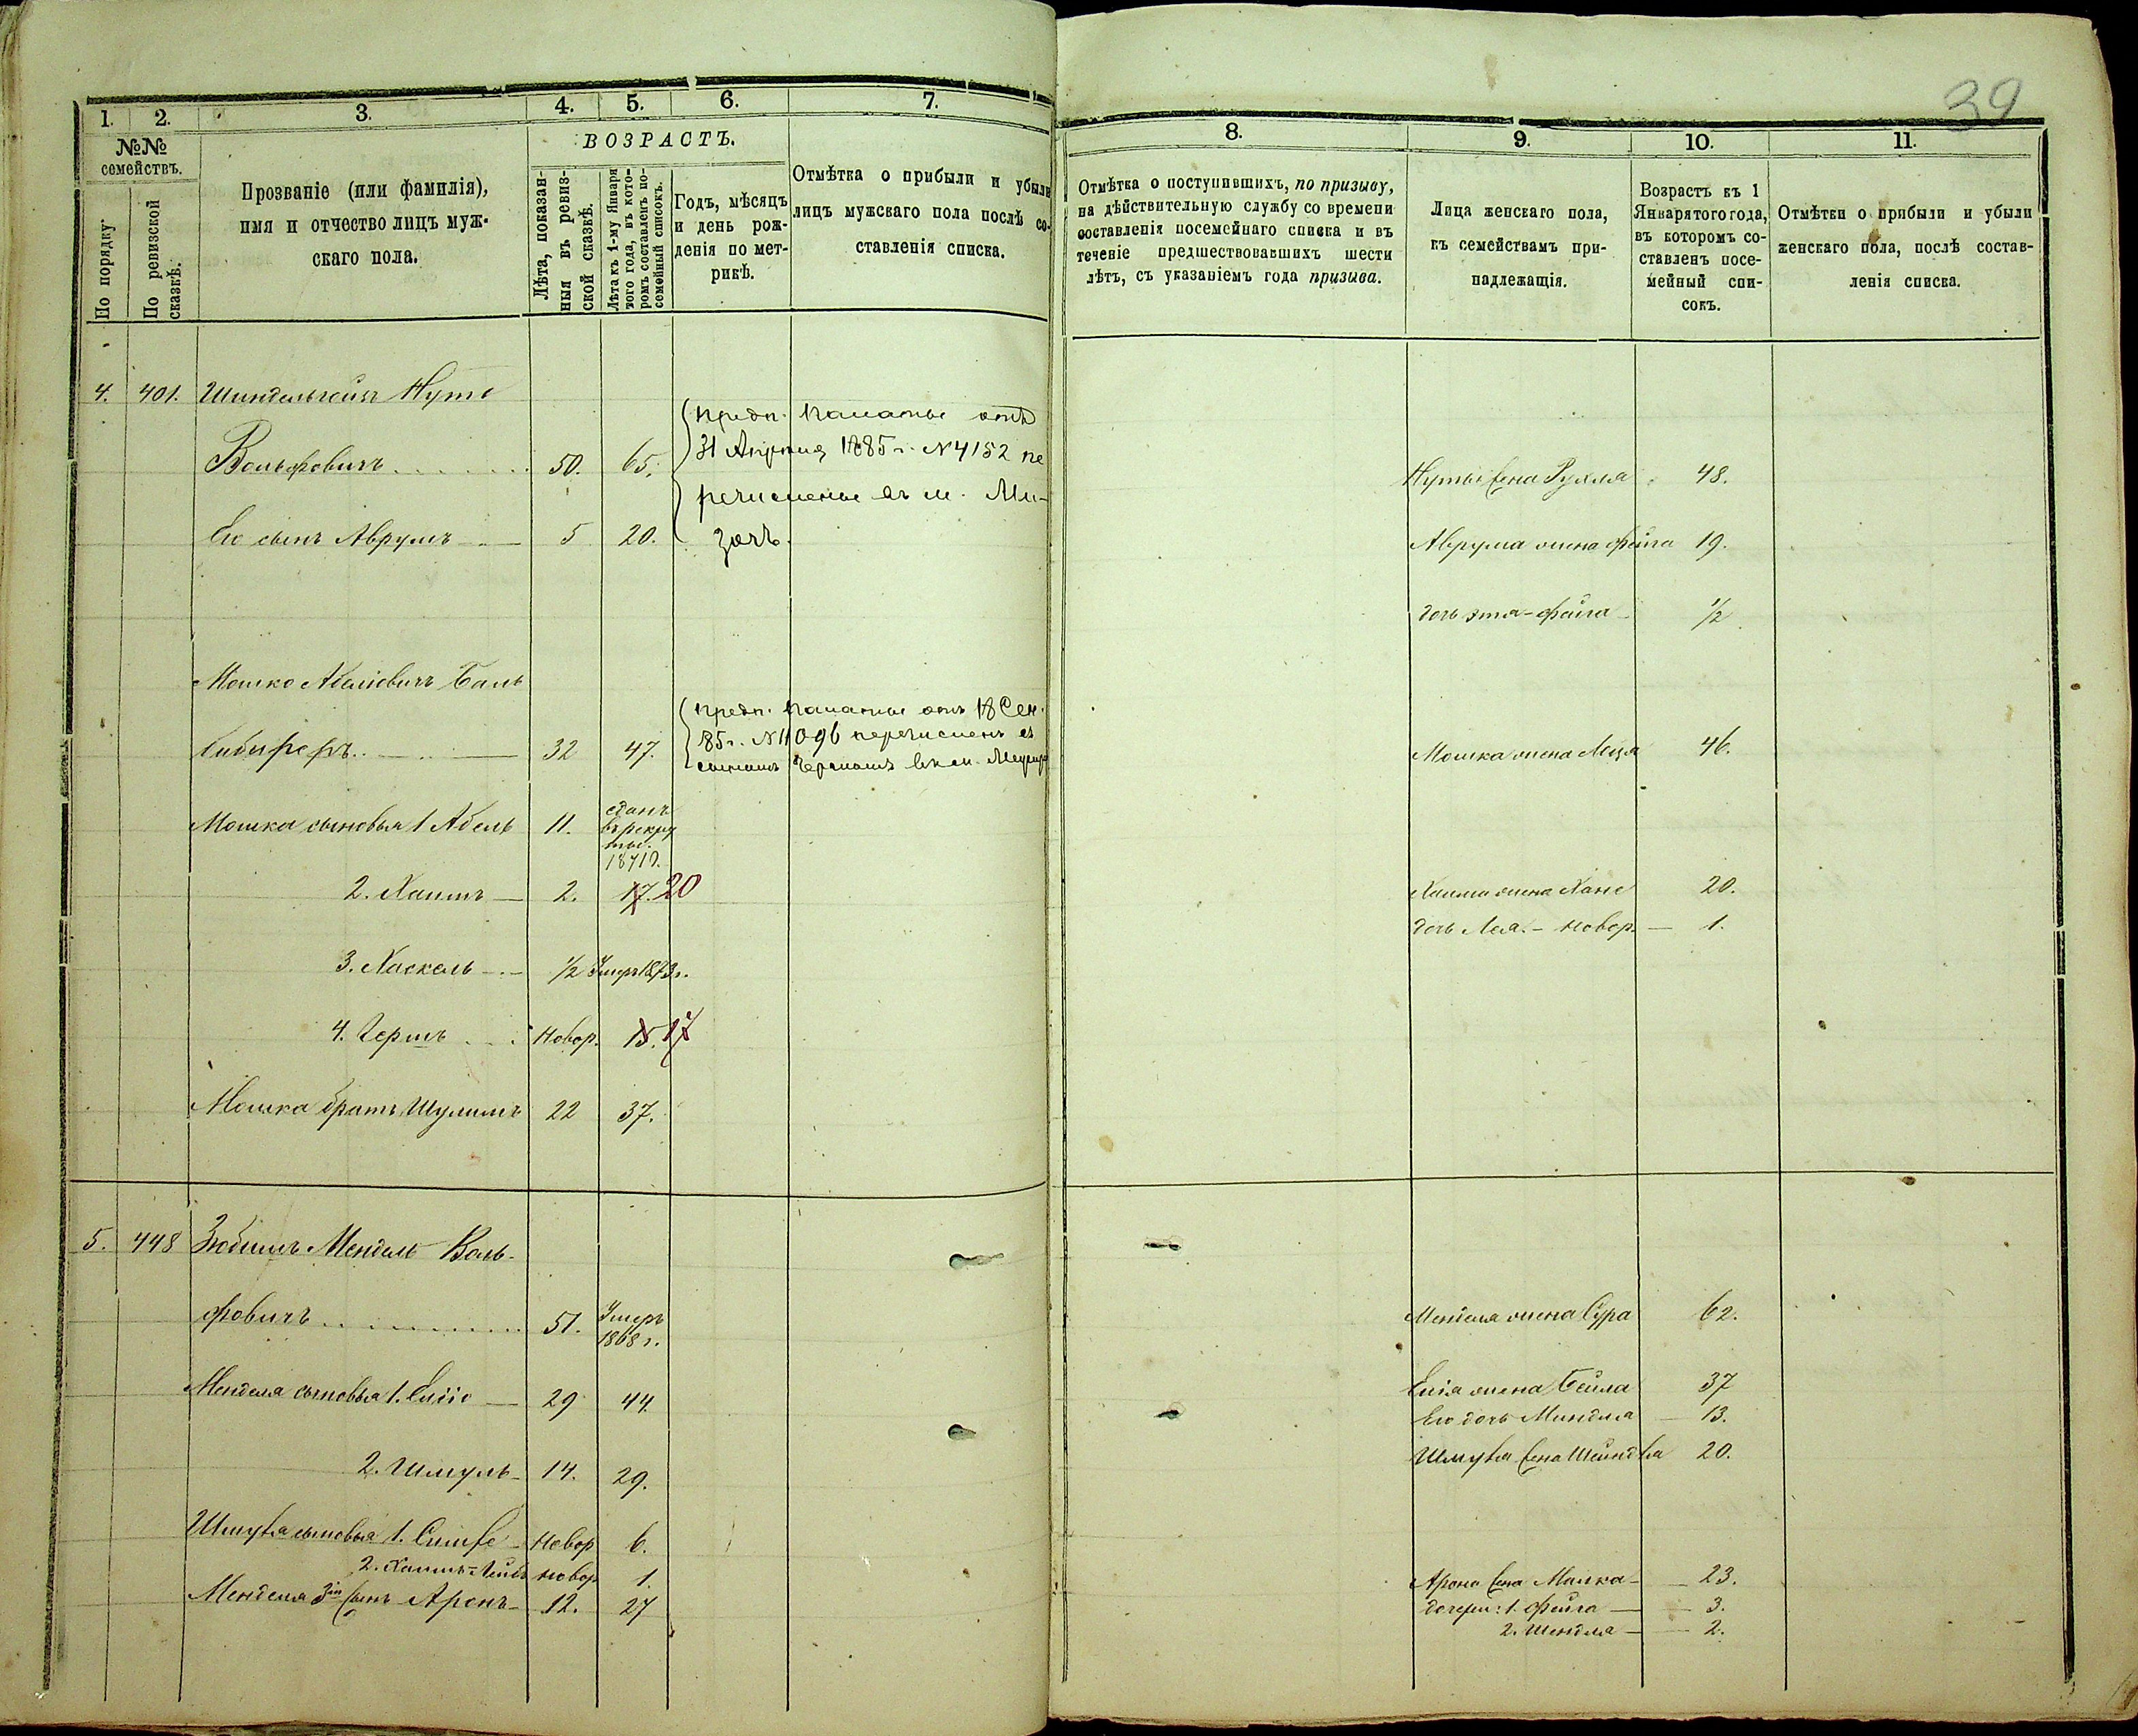 39
1. 2. 3. 4. 5. 6. 7.
№№ семействъ.
По порядку.
По ревизской сказкѣ.
Прозваніе (или фамилія),
имя и отчество лицъ муж-
скаго пола.
ВОЗРАСТЪ.
Лѣта, показан-
ныя въ ревиз-
ской сказкѣ.
Лѣта къ 1-му Января
того года, въ кото-
ромъ составленъ по-
семейный списокъ.
Годъ, мѣсяцъ
и день рож-
денія по мет-
рикѣ.
Отмѣтка о прибыли и убыли
лицъ мужскаго пола послѣ со-
ставленія списка.
8. 9. 10. 11.
Отмѣтка о поступившихъ, по призыву,
на дѣйствительную службу со времени
составленія посемейнаго списка и въ
теченіе предшествовавшихъ шести
лѣтъ, съ указаніемъ года призыва.
Лица женскаго пола,
къ семействамъ при-
надлежащія.
Возрастъ къ 1
Января того года,
въ которомъ со-
ставленъ посе-
мейный спи-
сокъ.
Отмѣтки о прибыли и убыли
женскаго пола, послѣ состав-
ленія списка.
4. 401. Нута
Вольфовичъ 50. 65.
Его сынъ Аврумъ 5 20.
предп. палаты отъ
31 Апрѣля 1885 г. № 4152 пе
речислены въ м. Ми-
зочъ.
Мошко Абелiовичъ Баль
32 47.
предп. палаты отъ 18 Сен.
85 г. № 11096 перечисленъ съ
сыномъ Гершомъ въ м.
Мошка сыновья 1 Абель 11. сданъ
въ рекру
ты.
1871 г.
2. Хаимъ 2. 17. 20
3. Хаскель ½ Умеръ 1873 г.
4. Гершъ Новор. 15. 17
Мошка братъ Шулимъ 22 37.
5. 448 Мендель Воль-
фовичъ 51. Умеръ
1868 г.
Менделя сыновья 1. Еліо 29 44.
2. Шмуль 14. 29.
Шмуля сыновья 1. Новор 6.
2. Хаимъ-Лейбъ новор 1.
Менделя 3й сынъ Аронъ 12. 27
Нуты жена Рухля 48.
Аврума жена Фейга 19.
дочь Эта-Фейга ½
Мошка жена 46.
Хаима жена Хане 20.
дочь Лея. - новор. 1.
Менделя жена Сура 62.
Еліа жена Бейла 37
Его дочь Миндля 13.
Шмуля жена Шейндля 20.
Арона жена Малка 23.
дочери: 1. Фейга 3.
2. Шендля 2.